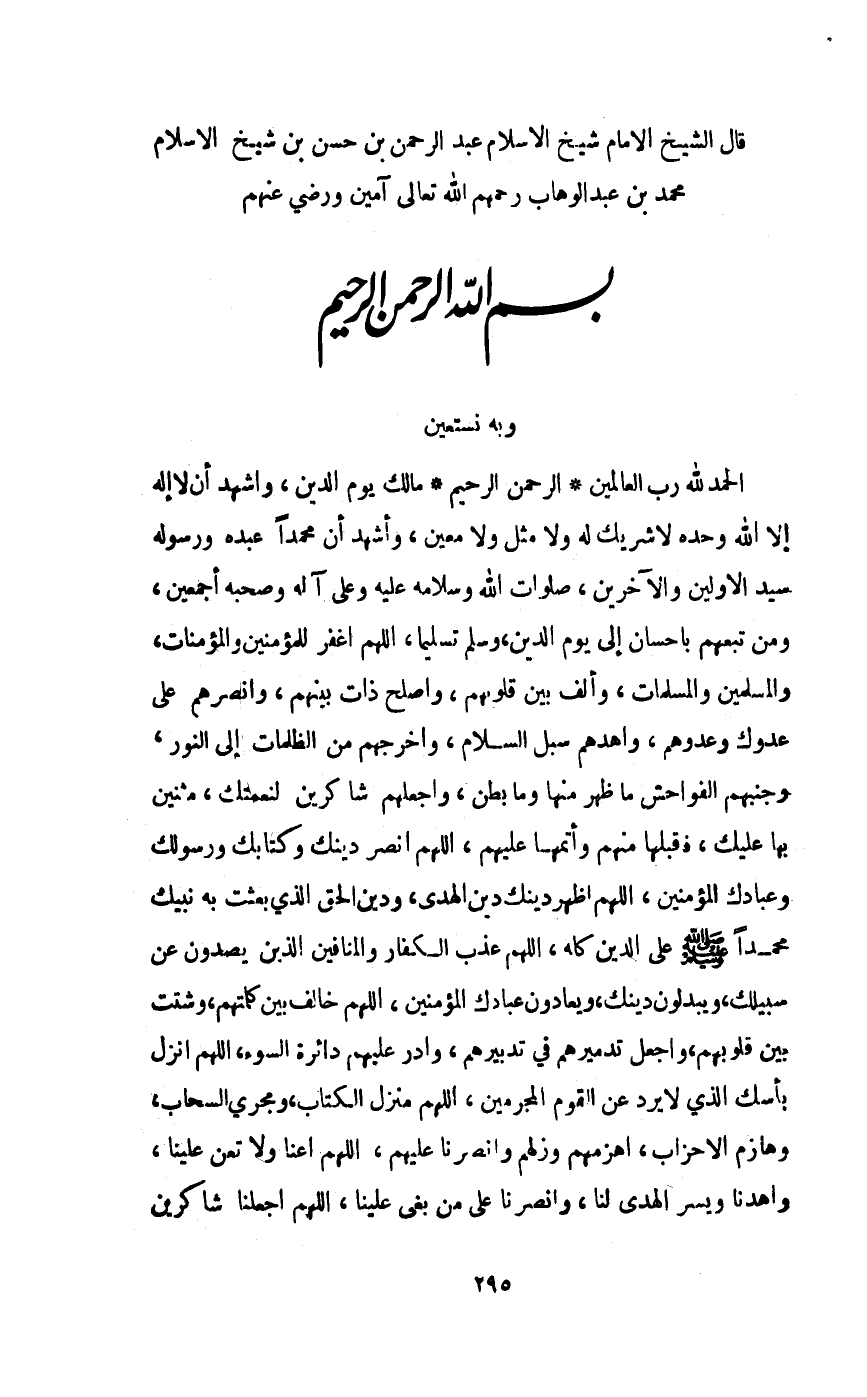 قال الشيخ الامام شيخ الاسلام عبد الرحمن بن حسن بن شيخ الاسلام
محمد بن عبدالوهاب رحمهم الله تعالى آمين ورضي عنهم
بسم الله الرحمن الرحيم
وبه نستعين
الحمد لله رب العالمين * الرحمن الرحيم * مالك يوم الدين ، واشهد أن لا إله
إلا الله وحده لا شريك له ولا مثل ولا معين ، وأشهد أن محمداً عبده ورسوله
سيد الاولين والآخرين ، صلوات الله وسلامه عليه وعلى آله وصحبه أجمعين ،
ومن تبعهم باحسان إلى يوم الدين، وسلم تسليما ، اللهم اغفر للمؤمنين والمؤمنات،
والمسلمين والمسلمات ، وألف بين قلوبهم ، واصلح ذات بينهم ، وانصرهم على
عدوك وعدوهم ، واهدهم سبل السلام ، واخرجهم من الظلمات إلى النور ،
وجنبهم الفواحش ما ظهر منها وما بطن ، واجعلهم شاكرين لنعمتك ، مثنين
بها عليك ، فقبلها منهم وأتمها عليهم ، اللهم انصر دينك وكتابك ورسولك
وعبادك المؤمنين ، اللهم اظهر دينك دين الهدى، ودين الحق الذي بعثت به نبيك
محمداً ﷺ على الدين كله ، اللهم عذب الكفار والمنافقين الذين يصدون عن
سبيلك، ويبدلون دينك، ويعادون عبادك المؤمنين ، اللهم خالف بين كلمتهم، وشتت
بين قلوبهم، واجعل تدميرهم في تدبيرهم ، وادر عليهم دائرة السوء، اللهم انزل
بأسك الذي لا يرد عن القوم المجرمين ، اللهم منزل الكتاب، ومجري السحاب،
وهازم الاحزاب ، اهزمهم وزلزلهم وانصرنا عليهم ، اللهم اعنا ولا تعن علينا ،
واهدنا ويسر الهدى لنا ، وانصرنا على من بغى علينا ، اللهم اجعلنا شاكرين
٢٩٥